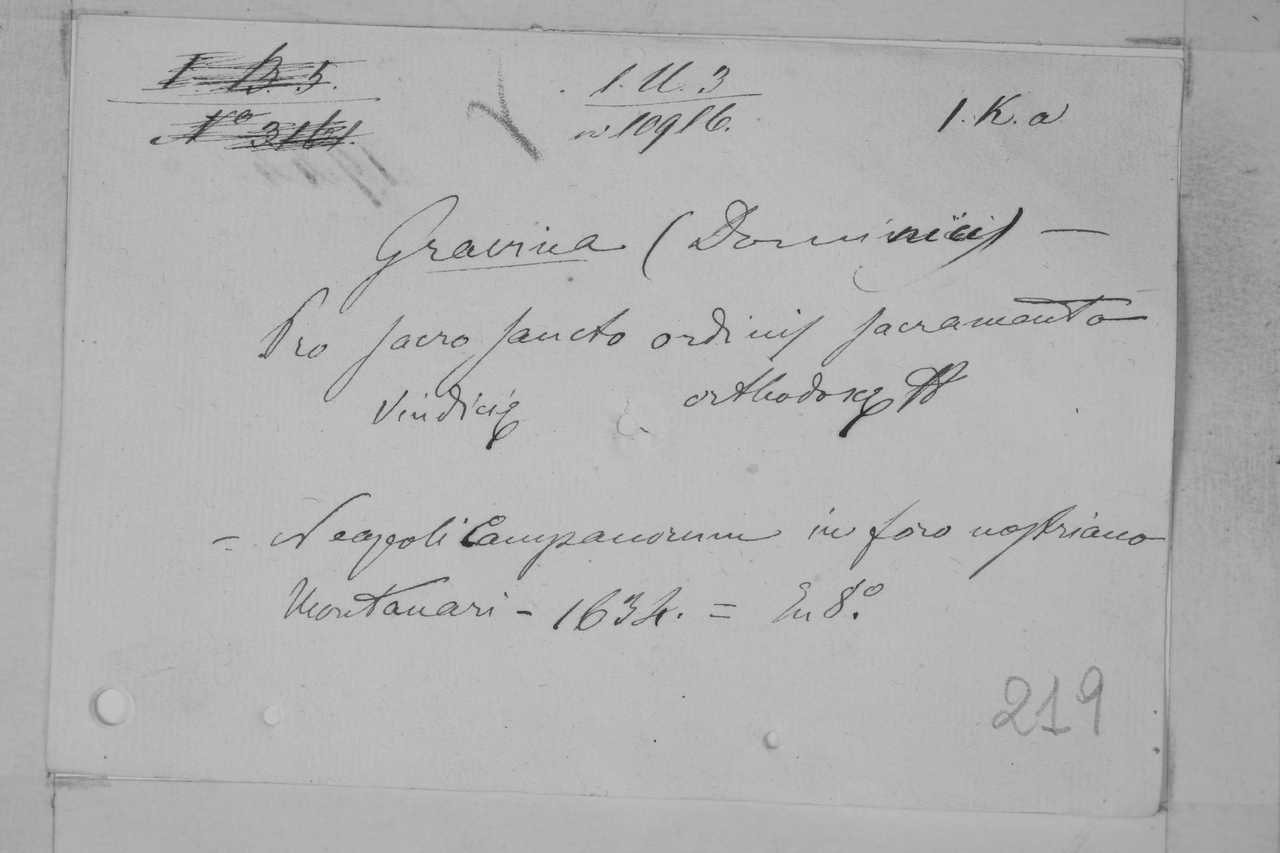 I B. 5.
Nº 3161.
1. U. 3
nº 10916.
1. K. a
Gravina (Dominicus) —
Pro sacro sancto ordinis sacramento
vindicię orthodoxę
= Neapoli Campanorum in foro nostriano
Montanari - 1634. = En 8º.
219